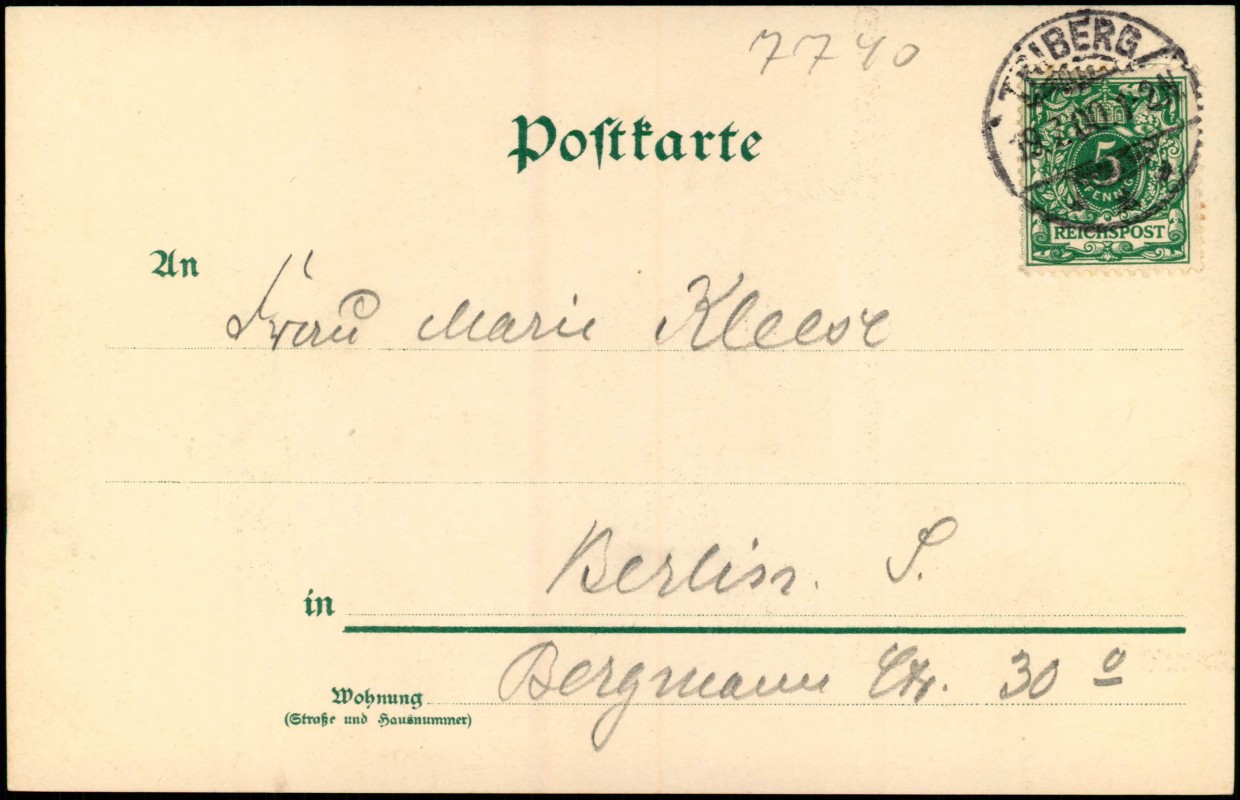 7740
Postkarte
TRIBERG
5
PFENNIG
REICHSPOST
An
Frau Marie Kleese
in Berlin. S.
Bergmann Str. 30 o
Wohnung
(Straße und Hausnummer)